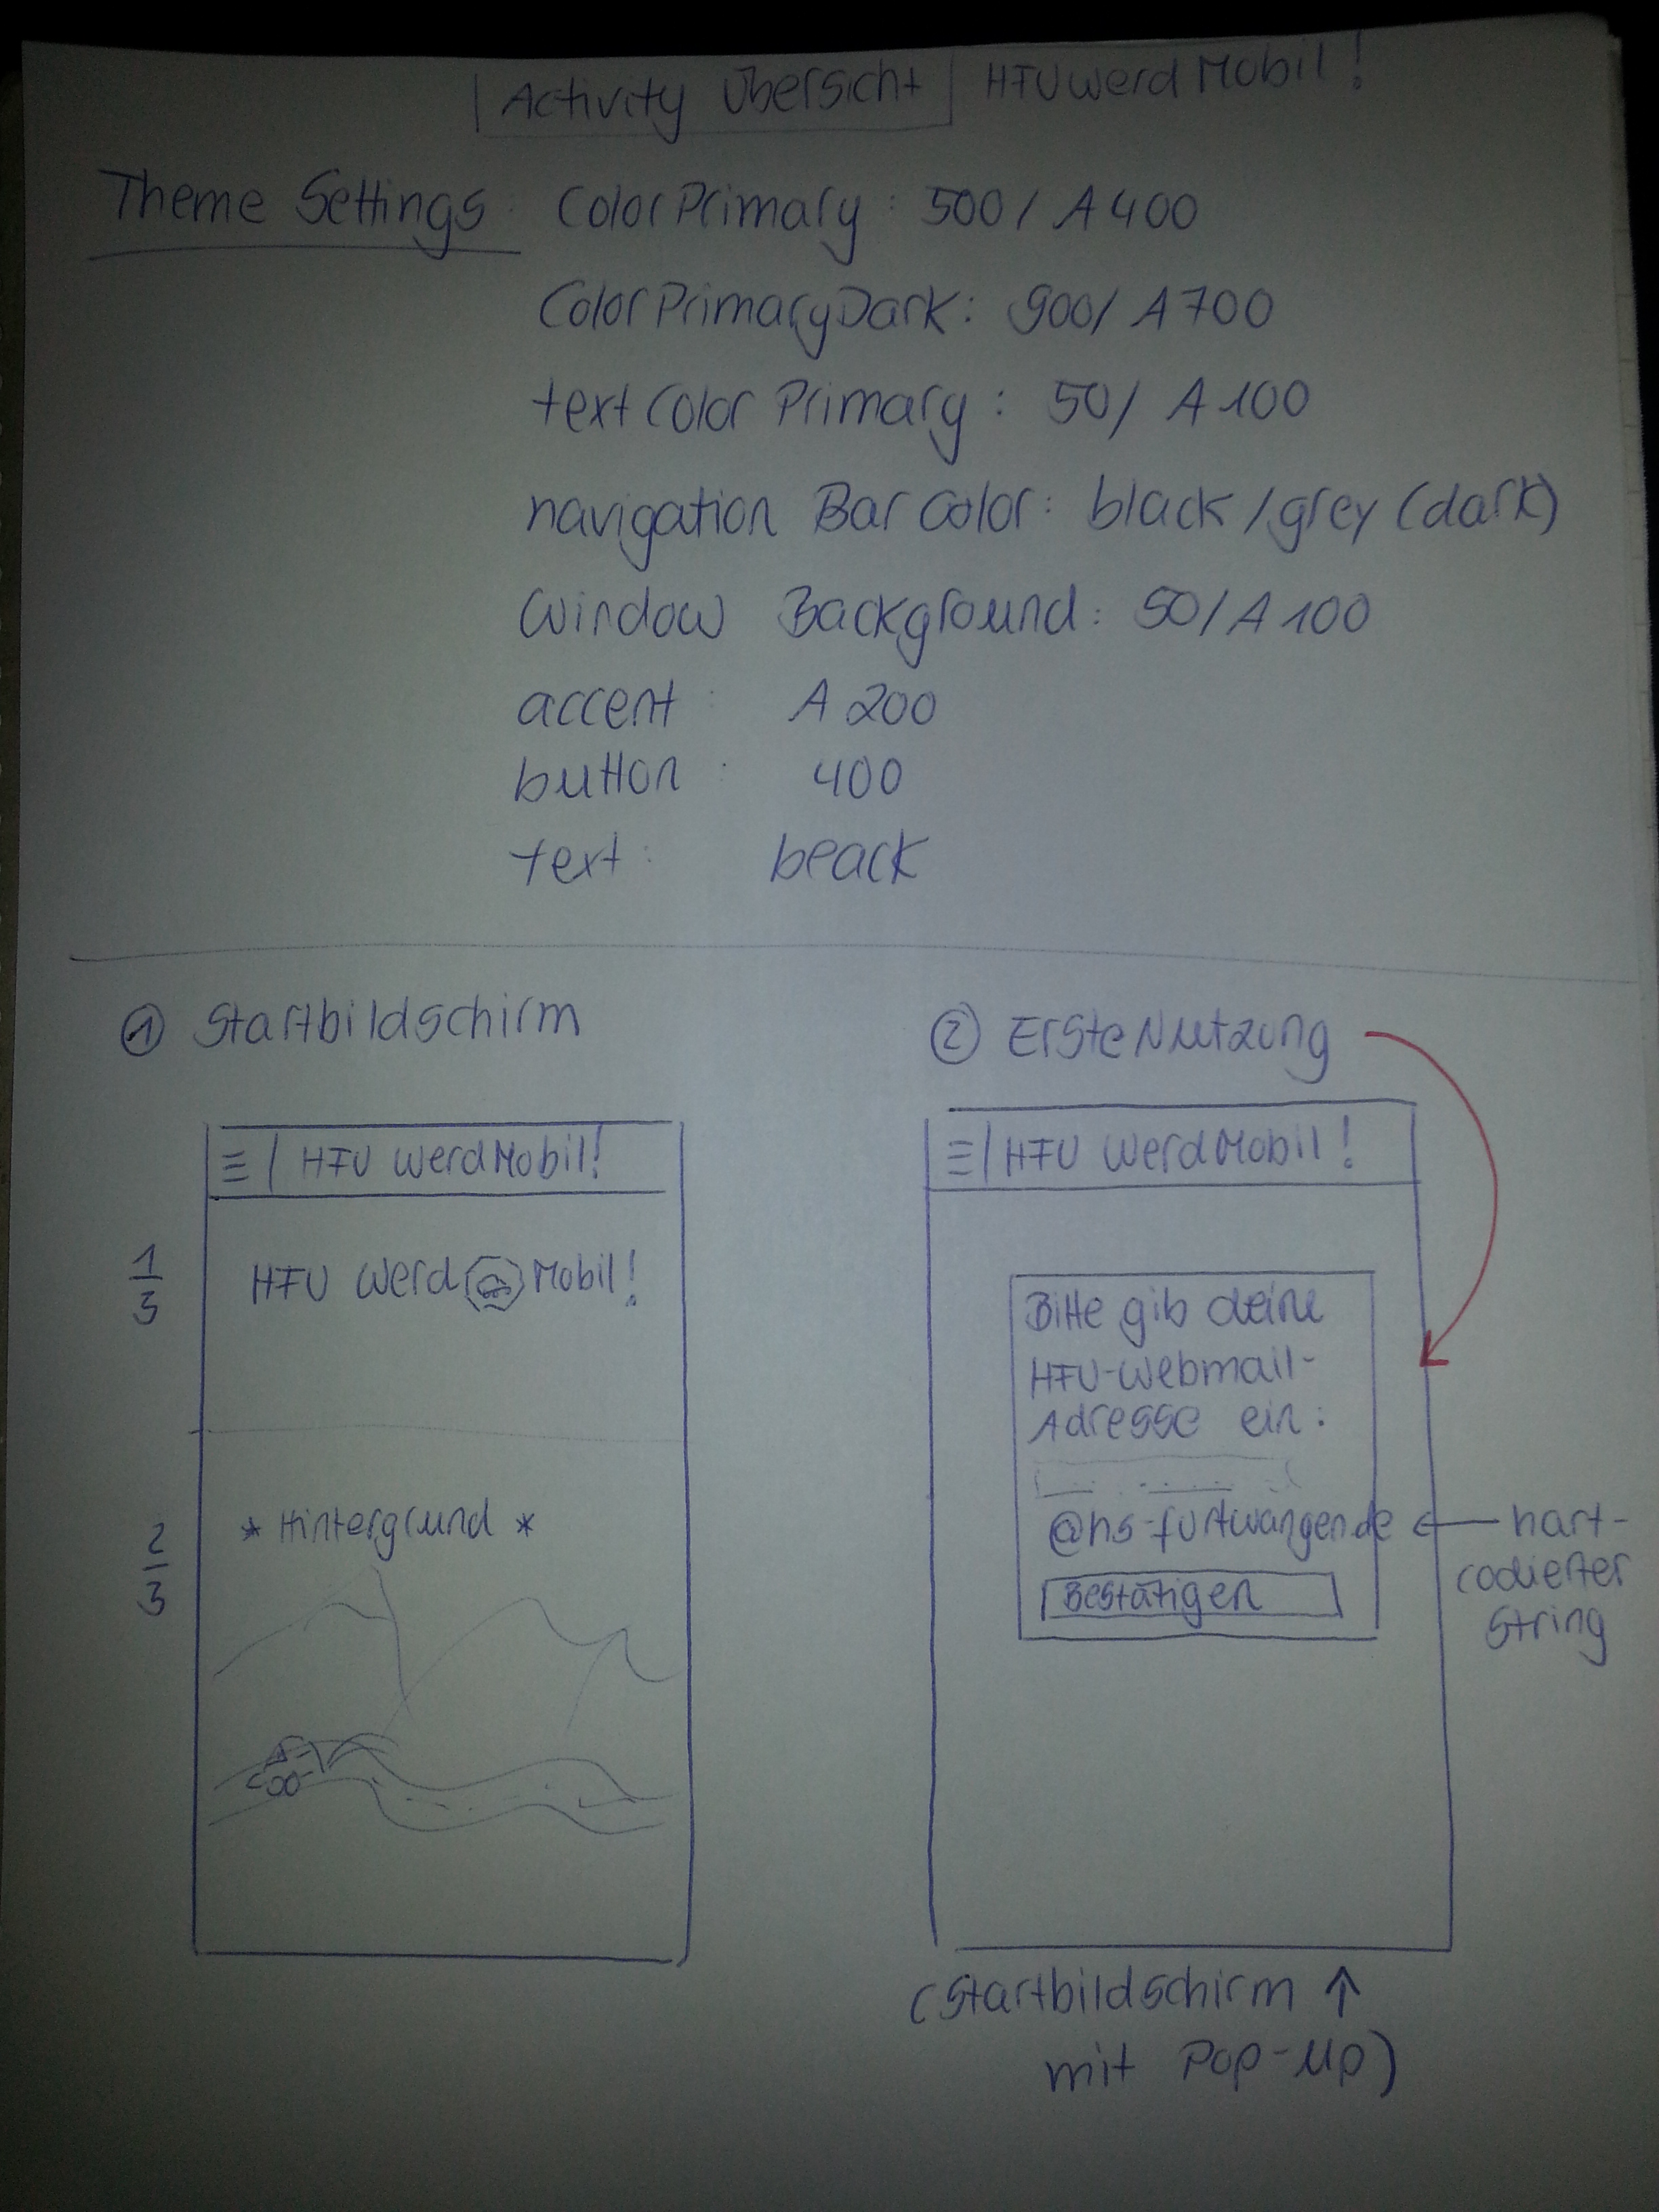 Activity Übersicht HFU Werd Mobil!
Theme Settings: Color Primary: 500 / A400
Color Primary Dark: 900/ A700
text Color Primary: 50/ A100
navigation Bar Color: black / grey (dark)
Window Background: 50/A100
accent: A200
button: 400
text: beack
① Startbildschirm
② Erste Nutzung
≡ | HFU Werd Mobil!
≡ | HFU Werd Mobil!
1/3
HFU Werd Mobil!
Bitte gib deine
HFU-Webmail-
Adresse ein:
2/3
* Hintergrund *
@hs-furtwangen.de ← hart-
codierter
String
Bestätigen
(Startbildschirm ↑
mit Pop-Up)